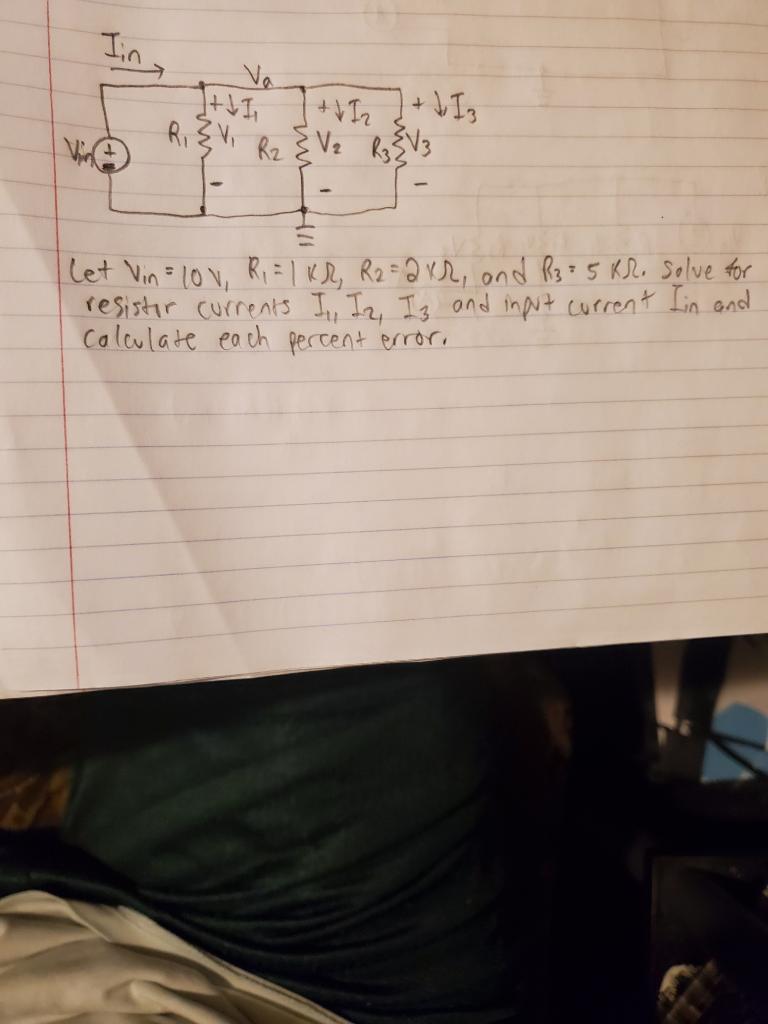 Iin
Va
+ ↓ I1
+ ↓ I2
+ ↓ I3
Vin
+
-
R1
V1
R2
V2
R3
V3
-
-
-
Let Vin = 10 V, R1 = 1 KΩ, R2 = 2 KΩ, and R3 = 5 KΩ. Solve for
resistor currents I1, I2, I3 and input current Iin and
Calculate each percent error.